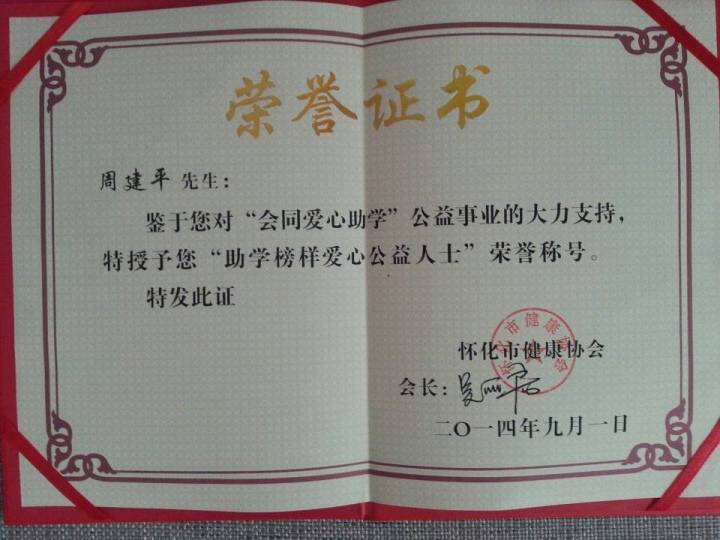 荣誉证书
周建平 先生：
鉴于您对“会同爱心助学”公益事业的大力支持，
特授予您“助学榜样爱心公益人士”荣誉称号。
特发此证
怀化市健康协会
会长：
二〇一四年九月一日
怀化市健康协会